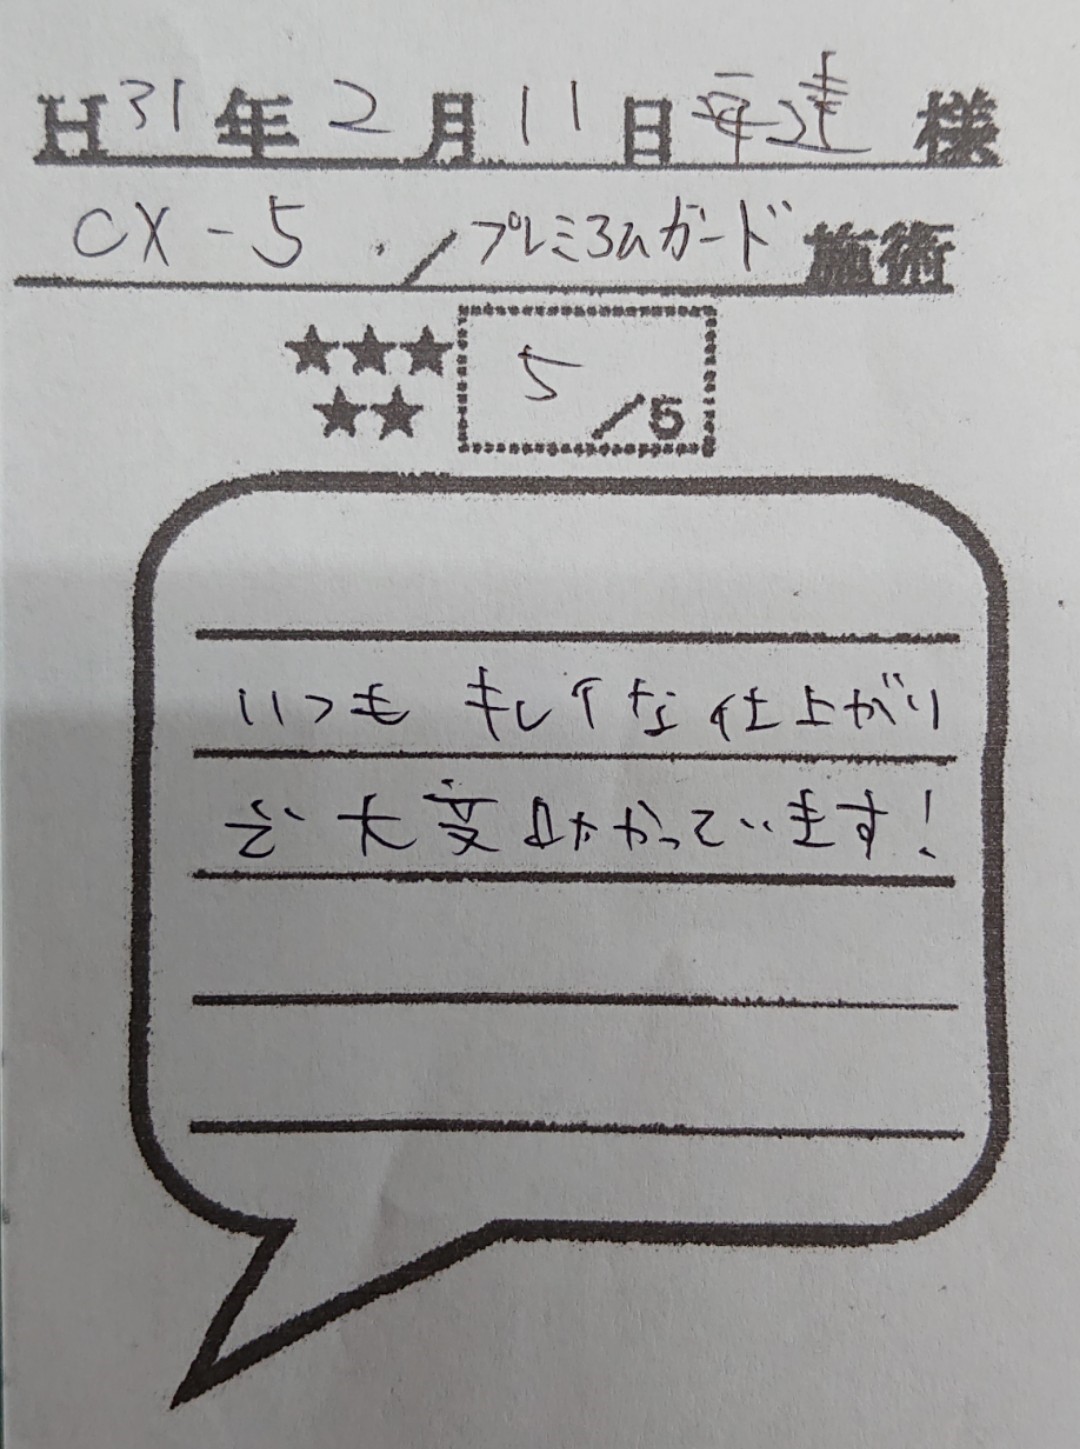 H31年2月11日 安達 様
CX-5 ／プレミアムガード 施術
★★★
★★
5/5
いつも キレイな仕上がり
で 大変助かっています!